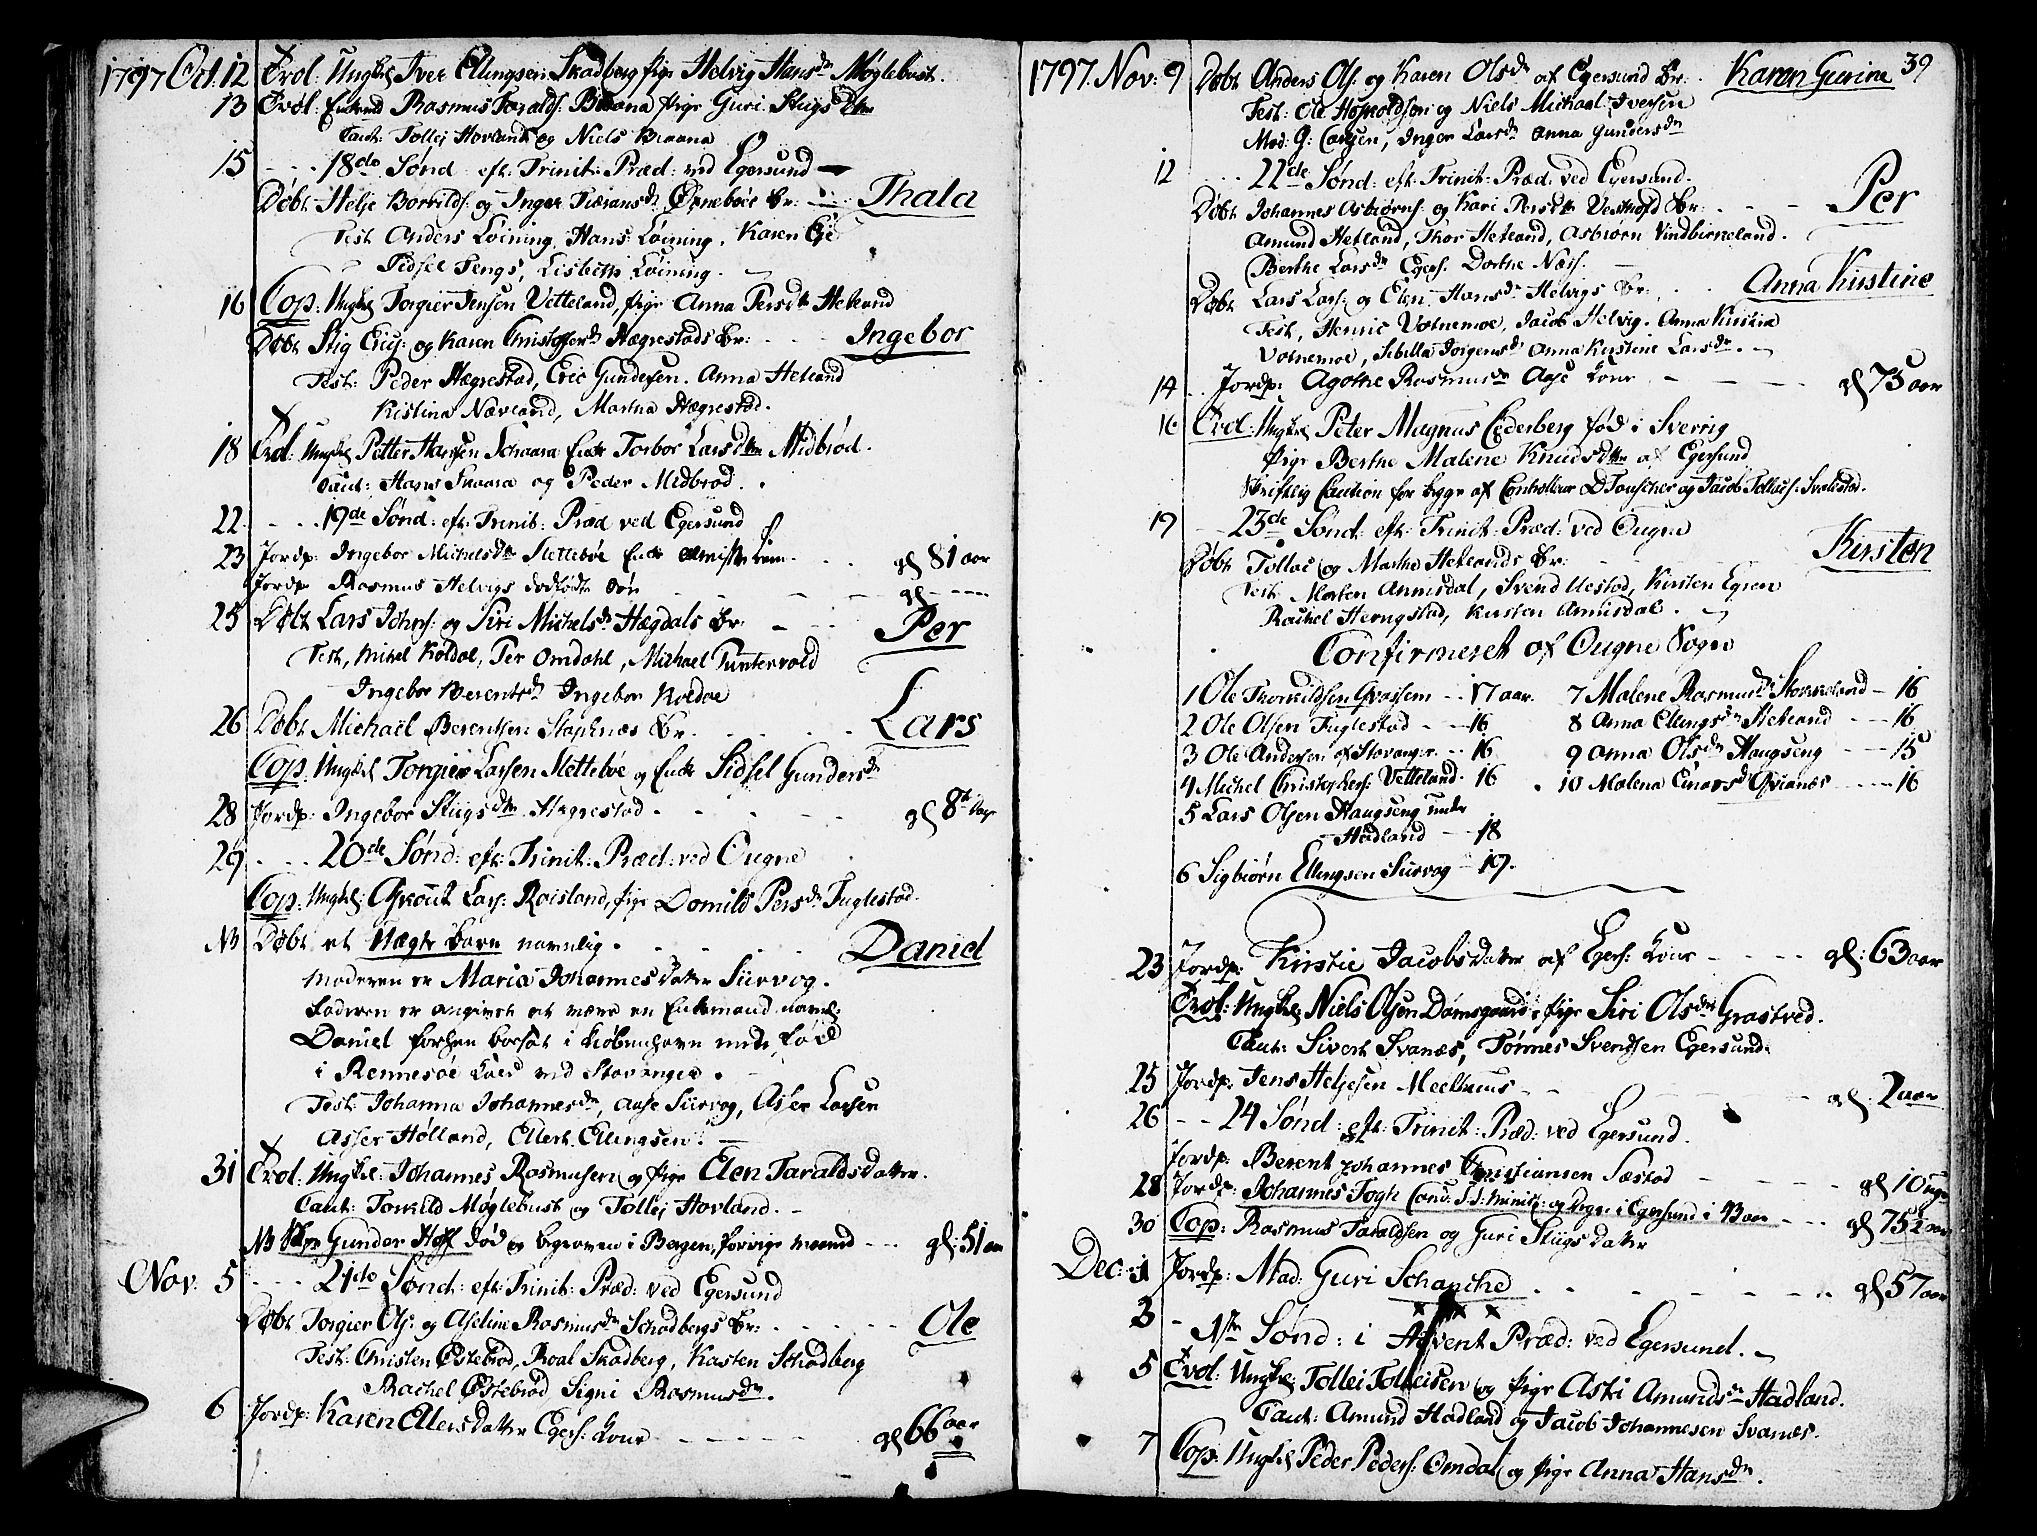 1797 Oct. 12 Trol: Ungkl Iver Ellingsen Skadberg pige Helvig Hansdr Møglebust.
13 Trol: Enkemd Rasmus Taralds: Braana pige Guri Stigs dtr
Caut: Tollej Hovland og Niels Braana
15 - - - 18de Sønd: eft: Trinit: Præd: ved Egersund
Døbt Helje Borkilds: og Inger Tiæransdr Ørnebøes Br: - - - Thala
Test Anders Løining, Hans Løining, Karen Eje
Sidsel Tengs, Lisbeth Løining.
16 Cop: Ungkl Torgier Jensen Vetteland, pige Anna Persdtr Hetland
Døbt Stig Erics: og Karen Christofersdr Hægrestads Br: - - - Ingebor
Test: Peder Hægrestad, Eric Gundersen. Anna Hetland
Kistina Næveland, Martha Hægrestad.
18 Trol: Ungkl Petter Hansen Schaara Enke Torbor Larsdtr Midbrød.
Caut: Hans Skaara og Peder Midbrød.
22. - - - 19de Sønd: eft: Trinit: Præd ved Egersund
23 Jordp: Ingebor Michelsdtr Slettebøe Enke Almisse Lem - - - gl 81 aar
Jordp Rasmus Helvigs dødfødte Søn - - - gl - - -
25 Døbt Lars Johns: og Siri Michelsdr Hægdals Br: - - - Per
Test, Michel Koldal, Per Omdahl, Michael Puntervold
Ingebor Berentsdr Ingebor Koldal
26 Døbt Michael Berentsen Stapnæs Br. - - - Lars
Cop: Ungkl Torgier Larsen Slettebøe og Enke Sidsel Gundersdr
28 Jordp: Ingebor Stiigsdtr Hægrestad - - - gl 8te Dage
29 - - - 20de Sønd: eft: Trinit: Præd: ved Ougne
Cop: Ungkl: Askout Lars: Roisland, pige Domild Persdr Fuglestad.
NB Døbt et Uægte Barn navnlig. - - - Daniel
Moderen er Maria Johannes datter Siirvog.
Faderen er angivet at være en Enkemand navnl:
Daniel forhen borsat i Kiøbenhavn nede fød
i Rennesøe ved Stavanger.
Test: Johanna Johannesdr, Aase Siirvog, Aser Larsen
Asser Hølland, Ellert Ellingsen.
31 Trol: Ungkl: Johannes Rasmusen og pige Elen Taralds datter.
Caut: Torkild Møglebust og Tollej Hovland.
NB Skpr Gunder Hoff død og begraven i Bergen, forrige maaned - - - gl: 51 aar
Nov. 5 - - - 21de Sønd: eft: Trinit: Præd: ved Egersund
Døbt Torgier Ols: og Aseline Rasmusdr Schadbergs Br: - - - Ole
Test: Christen Østebrød, Roal Skadberg, Karsten Schadberg
Rachel Østebrød Signi Rasmusdr.
6 Jordp: Karen Ellers datter Egers: Kone - - - gl 66 aar
1797. Nov: 9 Døbt Anders Ols: og Karen Olsdr af Egersund Br: - Karen Gurine 39
Test: Ole Hoskoldsen og Niels Michael Iversen
Mad: G: Carssen, Inger Larsdr Anna Gundersdr
12 - - - 22de Sønd: eft: Trinit: Præd: ved Egersund.
Døbt Johannes Asbiørns: og Kari Persdtr Br: - - - Per
Amund Hetland, Thor Hetland, Asbiørn Vindbirkeland.
Berthe Larsdr Egers: Dorthe Næss.
Døbt Lars Lars: og Elen Hansdr Helvigs Br: - - - Anna Kirstine
Test, Henric Votnemoe, Jacob Helvig. Anna Kirstina
Votnemoe, Sibilla Jørgensdr Anna Kirstine Larsdr.
14 - - Jordp: Agothe Rasmusdr Aase Kone - - - gl 75 aar
16 Trol: Ungkl Peter Magnus Cederberg fød i Sverrig
pige Berthe Malene Knudsdtr af Egersund
Skriftlig Caution for begge af Controlleur D Touscher og Jacob Tollacs: Svalestad.
19 - 23de Sønd: eft: Trinit: Præd: ved Ougne
Døbt Tollac og Martha Hetlands Br: - - - Kirsten
Test Morten Annisdal, Svend Uestad, Kirsten Egren
Rachel Herrigstad, Kirsten Annisdal.
Confirmeret af Ougne Sogn
1 Ole Thorkildsen Grassem - - 17 aar. 7 Malene Rasmusdr Storkeland - 16
2 Ole Olsen Fuglestad - - 16 8 Anna Ellingsdr Hetland - - 16
3 Ole Andersen af Stavanger - - 16 9 Anna Olsdr Haugseng - - 15
4 Michel Christophers: Vetteland. 16 10 Malena Einarsdr Qvianes - - 16
5 Lars Olsen Haugseng under
Hadland - - 18
6 Sigbiørn Ellingsen Siirvog - 19.
23 Jordp: Kirstie Jacobs datter af Egers: Kone - - - gl: 63 aar
Trol: Ungkl Niels Olsen Damsgaard, pige Siri Olsdtr Grastved.
Caut: Sivert Svanæs, Tørnes Svendsen Egersund.
25 Jordp: Jens Heljesen Meelhuus - - - gl: 2 aar
26 - - 24 Sønd: eft: Trinit: Præd: ved Egersund.
Jordp: Berent Johannes Christiansen Sæstad - - - gl 10 uger
28 Jordp: Johannes Fogh Cand: S:S: Minist: og Degn i Egersund i 43 aar - - - gl 75½ aar
30 Cop: Rasmus Taraldsen og Guri Stiigs datter
Dec: 1 Jordp: Mad: Guri Schanche - - - gl 57 aar
3 - 1ste Sønd: i Advent Præd: ved Egersund.
5 Trol: Ungkl: Tollei Tolleisen og pige Aski Amundsdr Hadland.
Caut: Amund Hadland og Jacob Johannesen Svanæs.
7 Cop: Ungkl Peder Peders: Omdal og pige Anna Hansdr.